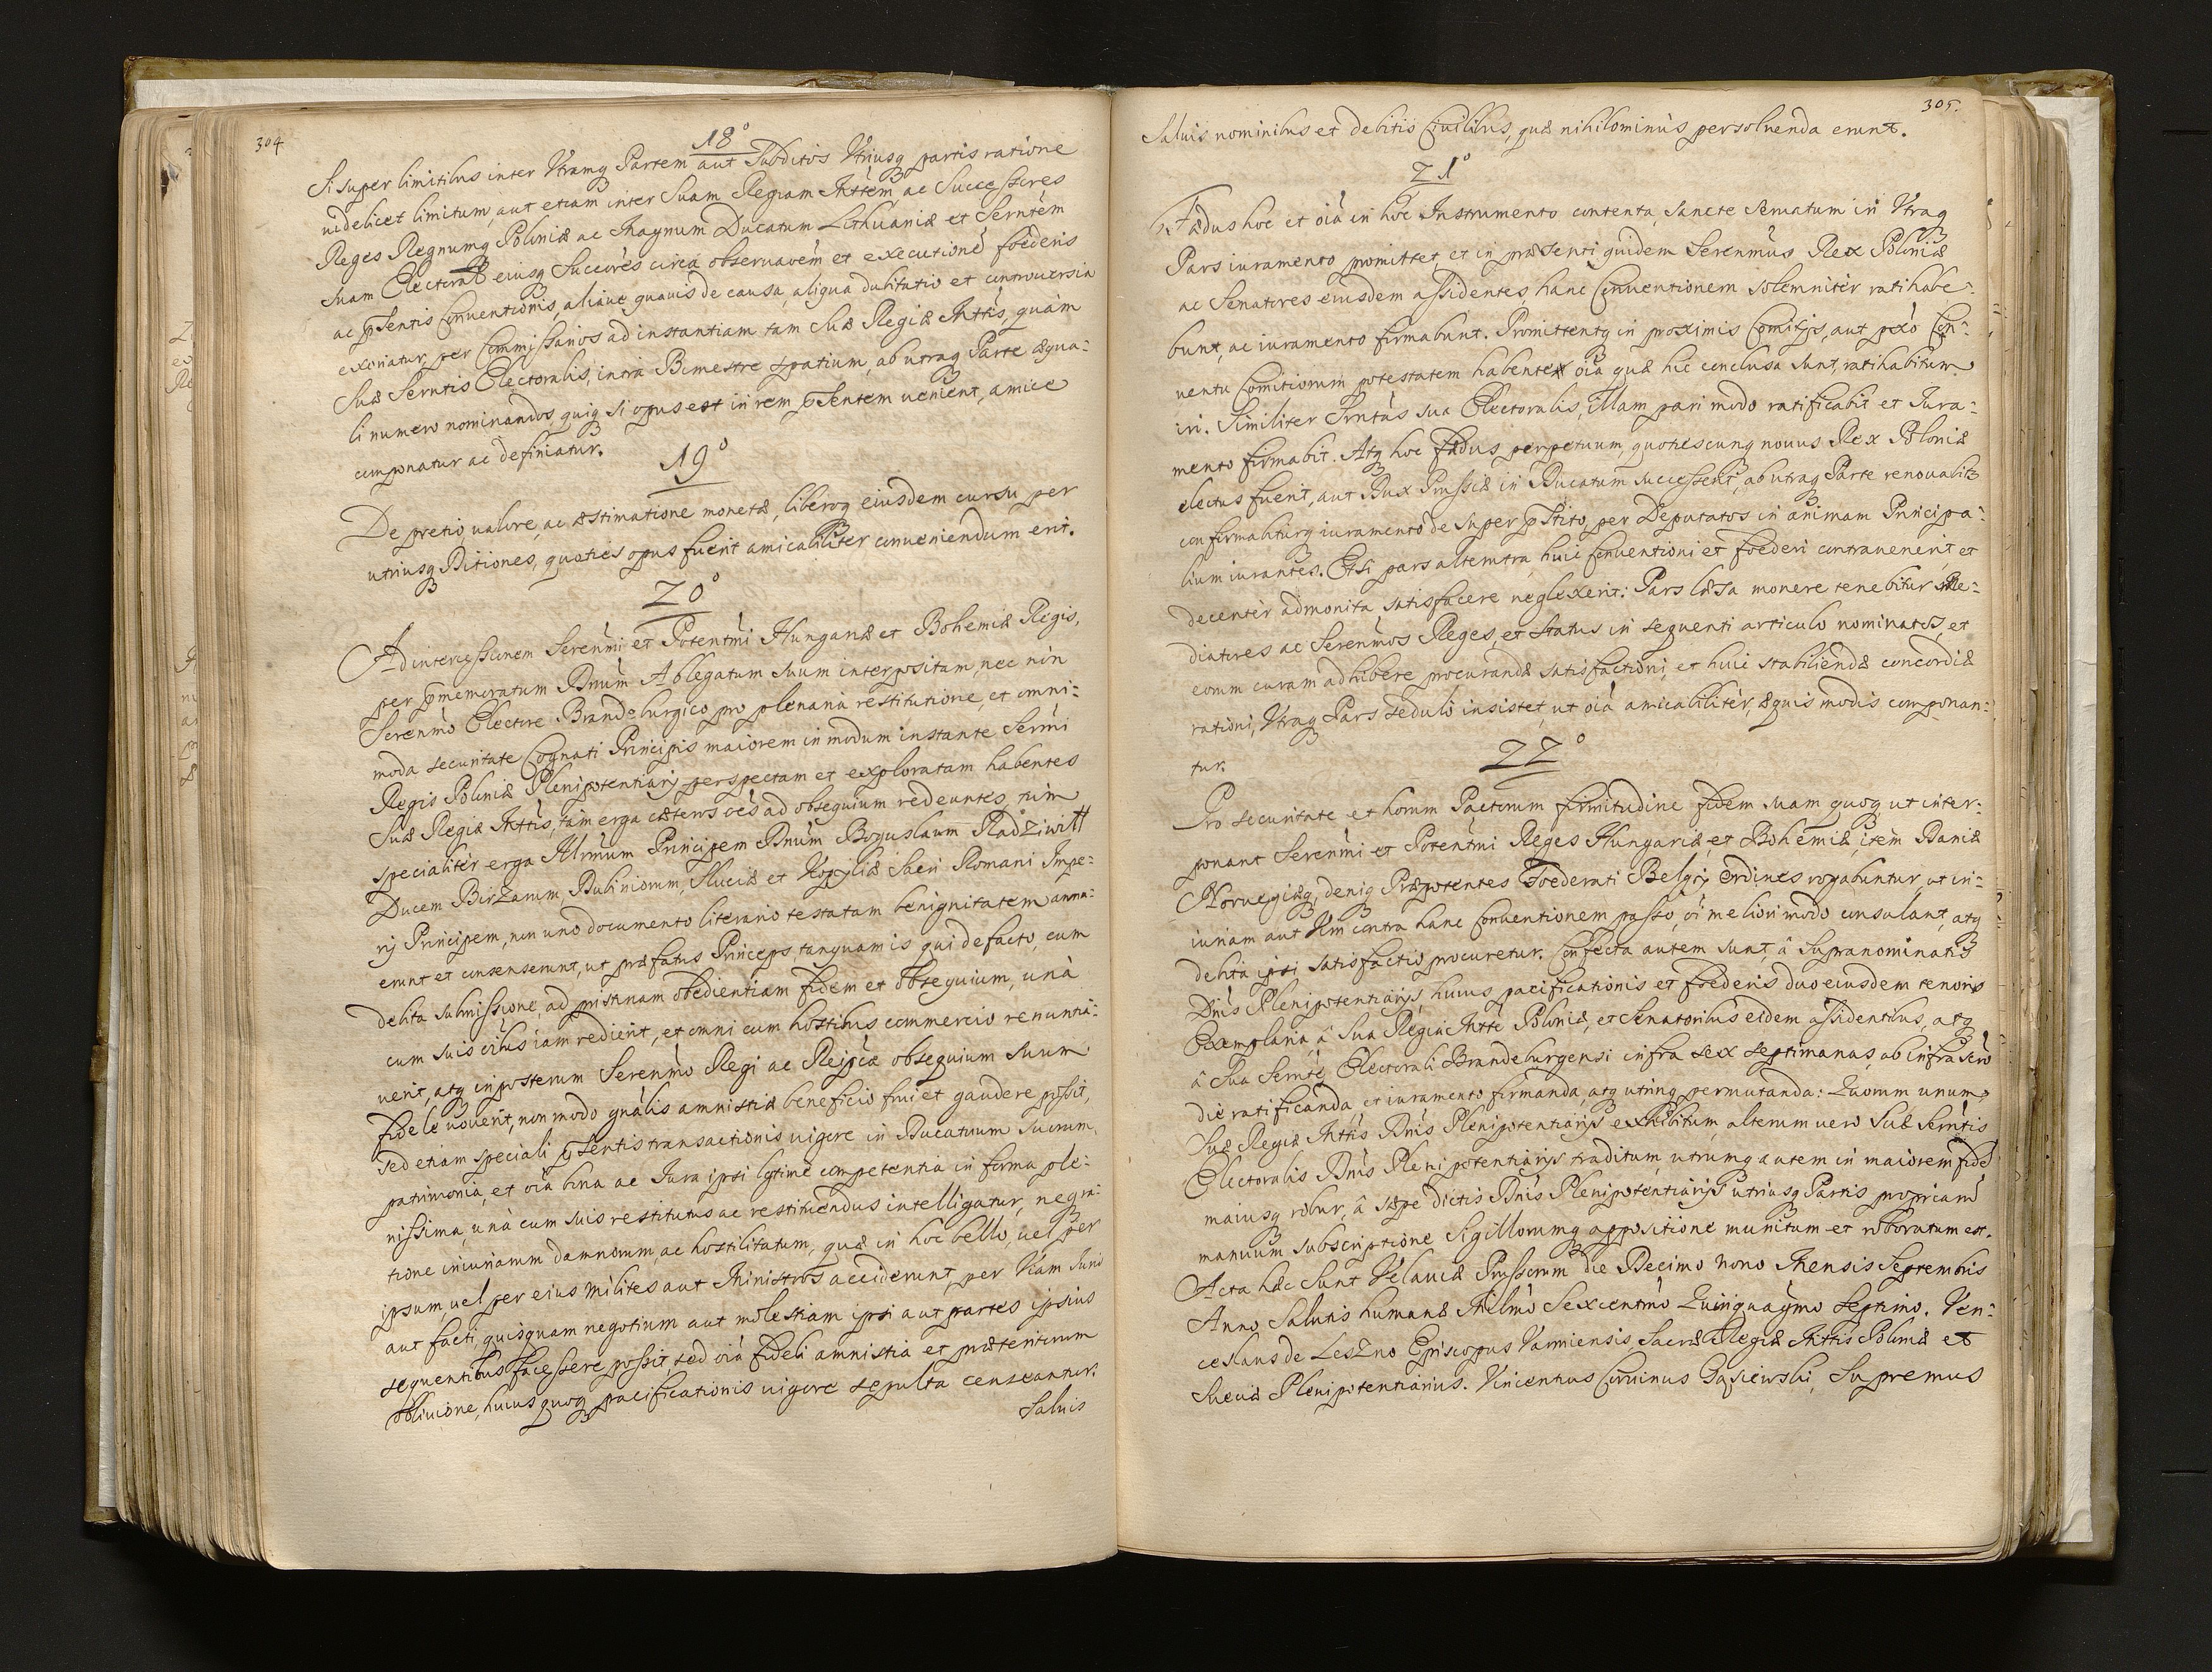 304
18°
Si super limitibus inter Vtramq Partem aut Subditos Vtriusq partis ratione
uidelicet limitum, aut etiam inter Suam Regiam Mttem, ac Successores
Reges Regnumq Poloniæ ac Magnum Ducatum Lithuaniæ et Serntem
suam Electoral eiusq Succores circa obseruaoem et executione foederis
ac pSentis Conuentionis, aliaue quauis de causa, aliqua dubitatio et controuersia
exoriatur, per Commissarios ad instantiam tam Suæ Regiæ Mttis, quàm
Suæ Serntis Electoralis, intra Bimestre spatium, ab utraq Parte æqua-
li numero nominandos, quiq si opus est in rem pSentem uenient, amice
componatur ac definiatur.
19°
De pretio, ualore, ac æstimatione monetæ, liberoq eiusdem cursu per
utriusq Ditiones, quoties opus fuerit amicabiliter conueniendum erit.
20°
Ad intercessionem Serenmi et Potentmi Hungariæ et Bohemiæ Regis,
per pmemoratum Dnum Ablegatum suum interpositam, nec non
Serenmo Electore Brandeburgico pro plenaria restitutione, et omni-
moda securitate Cognati Principis maiorem in modum instante Sermi
Regis Poloniæ Plenipotentiarij perspectam et exploratam habentes
Suæ Regiæ Mttis, tam erga cæteros oes ad obsequium redeuntes, tum
specialiter erga Illrmum Principem Dnum Boguslaum Radziwiłł
Ducem Birzarum, Dubincorum, Sluciæ et Kopyliæ Sacri Romani Impe-
rij Principem, non uno documento literario testatam benignitatem annu-
erunt et consenserunt, ut præfatus Princeps, tanquam is qui de facto, cum
debita submissione, ad pristinam obedientiam fidem et obsequium, unà
cum suis oibus iam redierit, et omni cum hostibus commercio renuntia-
uerit, atq in posterum Serenmo Regi ac Reipcæ obsequium suum
fidele uouerit, non modo gnalis amnistiæ beneficio frui et gaudere possit,
sed etiam speciali pSentis transactionis uigore in Ducatuum Suorum,
patrimonia, et oia bona ac Iura ipsi lgtime competentia in forma ple-
nissima, unà cum suis restitutus ac restituendus intelligatur, neq ra-
tione iniuriarum damnorum, ac hostilitatum, quæ in hoc bello, uel per
ipsum, uel per eius milites aut Ministros acciderunt, per Viam Iuris
aut facti, quisquam negotium aut molestiam ipsi aut partes ipsius
sequentibus facessere possit, sed oia fideli amnistia et præteritorum
obliuione, huius quoq pacificationis uigore sepulta censeantur.
Saluis
305.
Saluis nominibus et debitis Ciuilibus, quæ nihilominus persoluenda erunt.
21°
Fædus hoc et oia in hoc Instrumento contenta, sancte seruatum iri Vtraq
Pars iuramento promittet, et in præsenti quidem Serenmus Rex Poloniæ
ac Senatores eiusdem assidentes, hanc Conuentionem solemniter ratihabe-
bunt, ac iuramento firmabunt. Promittentq in proximis Comitijs, aut pro Con-
uentu Comitiorum potestatem habente, oia quæ hic conclusa sunt, ratihabitum
iri. Similiter Srntas sua Electoralis, illam pari modo ratificabit et Iura-
mento firmabit. Atq hoc fædus perpetuum, quotiescunq nouus Rex Poloniæ
electus fuerit, aut Dux Prussiæ in Ducatum successerit, ab utraq Parte renouabit
confirmabiturq iuramento de super pStito, per Deputatos in animam Principa-
lium iurantes. Etsi pars alterutra, huic conuentioni et foederi contrauenerit et
decenter admonita satisfacere neglexerit: Pars læsa monere tenebitur Me-
diatores ac Serenmos Reges, et status in sequenti articulo nominatos, et
eorum curam adhibere procurandæ satisfactioni, et huic stabiliendæ concordiæ
rationi, Vtraq Pars sedulo insistet, ut oia amicabiliter, æquis modis componan-
tur.
22°
Pro securitate et horum Pactorum firmitudine fidem suam quoq ut inter-
ponant Serenmi et Potentmi Reges Hungariæ et Bohemiæ, item Daniæ
Norvegiæq, deniq Præpotentes Foederati Belgij Ordines rogabuntur, ut in-
iuriam aut Vim contra hanc Conuentionem passo, oi meliori modo consulant, atq
debita ipsi satisfactio procuretur. Confecta autem sunt, â supranominatis
Dnis Plenipotentiarijs, huius pacificationis et foederis duo eiusdem tenoris
Exemplaria, â Sua Regia Mtte Poloniæ, et Senatoribus eidem assidentibus, atq
â Sua Sernte Electorali Brandeburgensi infra sex septimanas, ab infrascto
die ratificanda, et iuramento firmanda, atq utrinq permutanda: Quorum unum
Suæ Regiæ Mttis Dnis Plenipotentiarijs exhibitum, alterum uero Suæ Serntis
Electoralis Dnis Plenipotentiarijs traditum, utrumq autem in maiorem fide
maiusq robur, â sæpe dictis Dnis Plenipotentiarijs utriusq Partis propriaru
manuum subscriptione Sigillorumq appositione munitum et roboratum est.
Acta hæc sunt Velauiæ Prussorum die Decimo nono Mensis Septembris
Anno Salutis humanæ Millmo Sexcentmo Quinquagmo Septimo. Ven-
ceslaus de Leszno Episcopus Varmiensis, Sacræ Regiæ Mttis Poloniæ et
Sueciæ Plenipotentiarius. Vincentius Coruinus Gąsiewski, Supremus